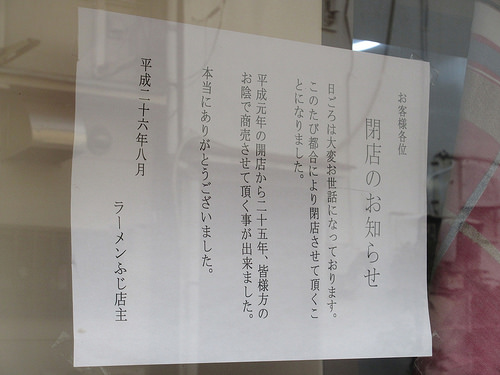 お客様各位
閉店のお知らせ
日ごろは大変お世話になっております。
このたび都合により閉店させて頂くこ
とになりました。
平成元年の開店から二十五年、皆様方の
お陰で商売させて頂く事が出来ました。
本当にありがとうございました。
平成二十六年八月
ラーメンふじ店主